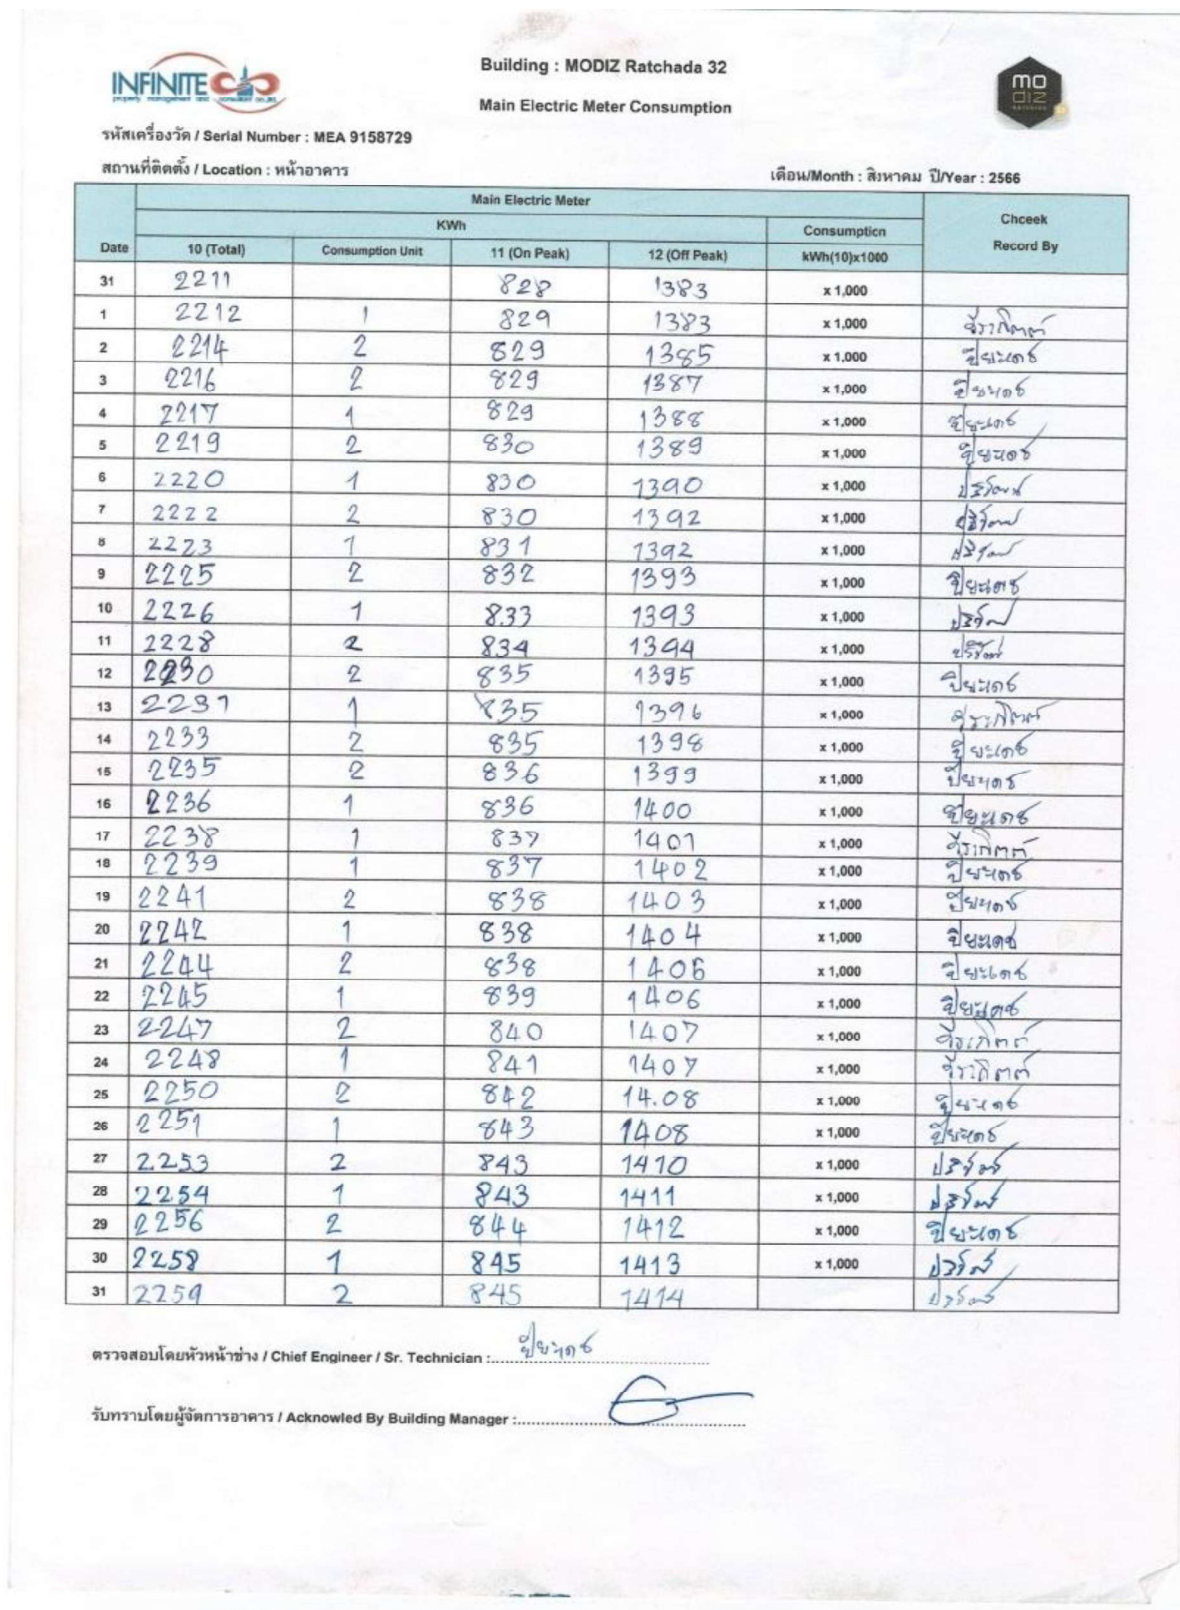 INFINITE
property management and consultant co.,ltd.
Building : MODIZ Ratchada 32
mo
diz
Main Electric Meter Consumption
รหัสเครื่องวัด / Serial Number : MEA 9158729
สถานที่ติดตั้ง / Location : หน้าอาคาร
เดือน/Month : สิงหาคม ปี/Year : 2566
Main Electric Meter
KWh Consumption Chceek
Date 10 (Total) Consumption Unit 11 (On Peak) 12 (Off Peak) kWh(10)x1000 Record By
31 2211 828 1383 x 1,000
1 2212 1 829 1383 x 1,000
2 2214 2 829 1385 x 1.000 ปิยะเดช
3 2216 2 829 1387 x 1,000 ปิยะเดช
4 2217 1 829 1388 x 1,000 ปิยะเดช
5 2219 2 830 1389 x 1,000 ปิยะเดช
6 2220 1 830 1390 x 1,000
7 2222 2 830 1392 x 1,000
8 2223 1 831 1392 x 1,000
9 2225 2 832 1393 x 1,000 ปิยะเดช
10 2226 1 833 1393 x 1,000
11 2228 2 834 1394 x 1,000
12 2230 2 835 1395 x 1,000 ปิยะเดช
13 2231 1 835 1396 x 1,000
14 2233 2 835 1398 x 1,000 ปิยะเดช
15 2235 2 836 1399 x 1,000 ปิยะเดช
16 2236 1 836 1400 x 1,000 ปิยะเดช
17 2238 1 837 1401 x 1,000
18 2239 1 837 1402 x 1,000 ปิยะเดช
19 2241 2 838 1403 x 1,000 ปิยะเดช
20 2242 1 838 1404 x 1,000 ปิยะเดช
21 2244 2 838 1406 x 1,000 ปิยะเดช
22 2245 1 839 1406 x 1,000 ปิยะเดช
23 2247 2 840 1407 x 1,000
24 2248 1 841 1407 x 1,000
25 2250 2 842 14.08 x 1,000 ปิยะเดช
26 2251 1 843 1408 x 1,000 ปิยะเดช
27 2253 2 843 1410 x 1,000
28 2254 1 843 1411 x 1,000
29 2256 2 844 1412 x 1,000 ปิยะเดช
30 2258 1 845 1413 x 1,000
31 2259 2 845 1414
ตรวจสอบโดยหัวหน้าช่าง / Chief Engineer / Sr. Technician : ปิยะเดช
รับทราบโดยผู้จัดการอาคาร / Acknowled By Building Manager :